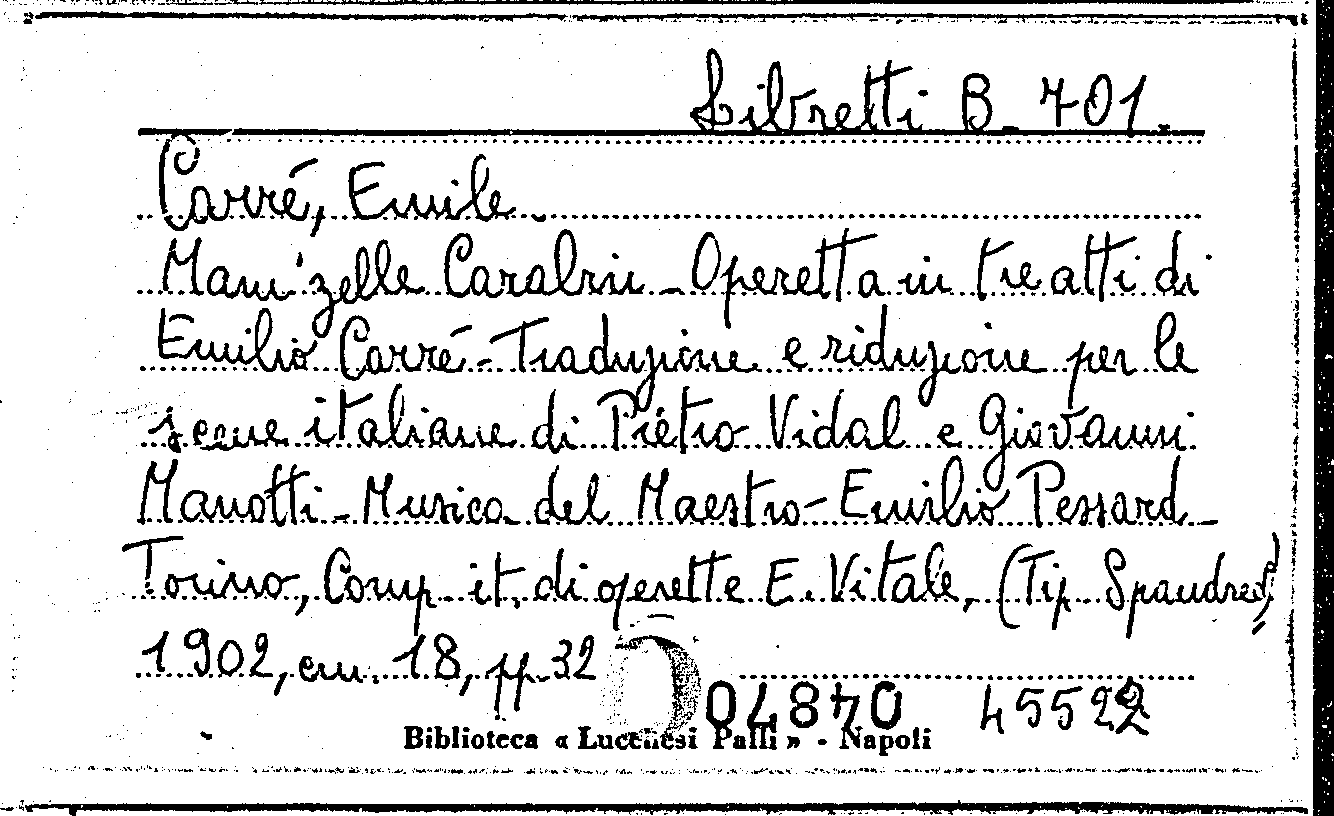 Libretti B_ 701.
Carré, Emile.
Mam'zelle Carabin_Operetta in tre atti di
Emilio Carré-Traduzione e riduzione per le
scene italiane di Piétro Vidal e Giovanni
Manotti_Musica del Maestro-Emilio Pessard_
Torino, Comp. it. di operette E. Vitale, (Tip. Spandre),
1902, cm. 18, pp. 32
04870 45522
Biblioteca « Lucchesi Palli » - Napoli